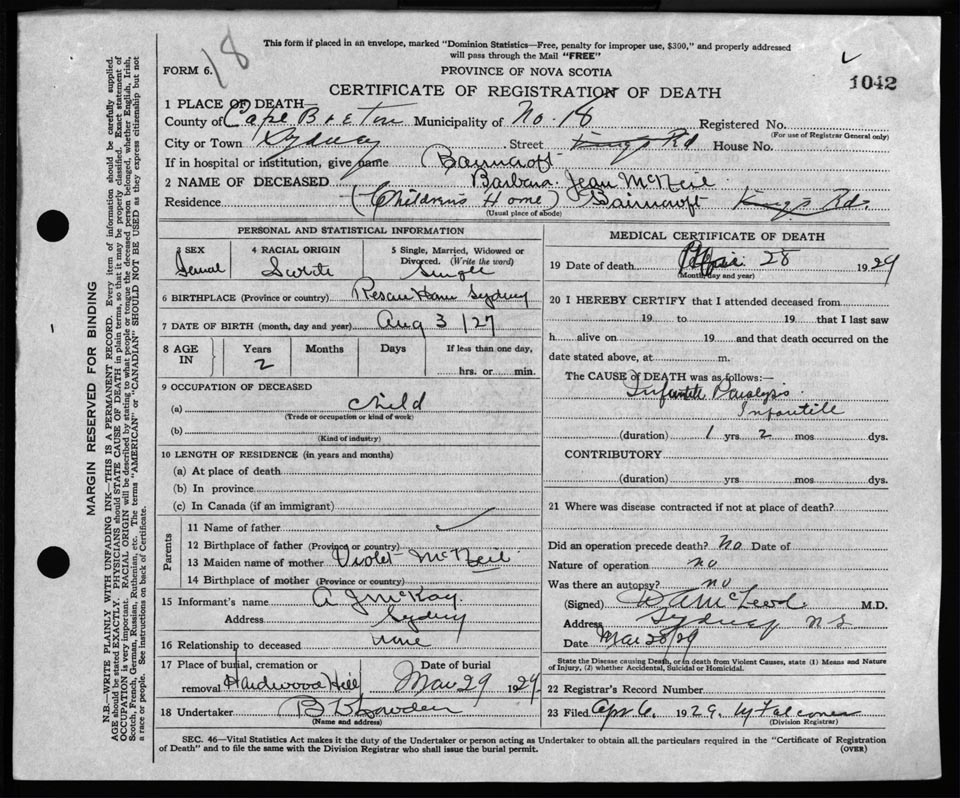 18
This form if placed in an envelope, marked "Dominion Statistics—Free, penalty for improper use, $300," and properly addressed
will pass through the Mail "FREE"
FORM 6.
PROVINCE OF NOVA SCOTIA
1042
CERTIFICATE OF REGISTRATION OF DEATH
1 PLACE OF DEATH—
County of Cape Breton Municipality of No. 18 Registered No.
(For use of Registrar General only)
City or Town Sydney Street Kings Rd House No.
If in hospital or institution, give name Bairncroft
2 NAME OF DECEASED Barbara Jean McNeil
Residence (Childrens Home) Bairncroft Kings Rd.
(Usual place of abode)
PERSONAL AND STATISTICAL INFORMATION
3 SEX
4 RACIAL ORIGIN
5 Single, Married, Widowed or
Divorced. (Write the word)
Single
6 BIRTHPLACE (Province or country) Sydney
7 DATE OF BIRTH (month, day and year) Aug 3 / 27
8 AGE
IN
Years
2
Months
Days
If less than one day,
hrs. or min.
9 OCCUPATION OF DECEASED
(a) child
(Trade or occupation or kind of work)
(b)
(Kind of industry)
10 LENGTH OF RESIDENCE (in years and months)
(a) At place of death
(b) In province
(c) In Canada (if an immigrant)
Parents
11 Name of father
12 Birthplace of father (Province or country)
13 Maiden name of mother Violet McNeil
14 Birthplace of mother (Province or country)
15 Informant's name A J McKay
Address Sydney
16 Relationship to deceased none
17 Place of burial, cremation or
removal Hardwood Hill
Date of burial
Mar 29 1929
18 Undertaker
(Name and address)
MEDICAL CERTIFICATE OF DEATH
19 Date of death 28 1929
(Month, day and year)
20 I HEREBY CERTIFY that I attended deceased from
19 to 19 that I last saw
h alive on 19 and that death occurred on the
date stated above, at m.
The CAUSE of DEATH was as follows:—
Infantile Paralysis
Infantile
(duration) 1 yrs 2 mos dys.
CONTRIBUTORY
(duration) yrs mos dys.
21 Where was disease contracted if not at place of death?
Did an operation precede death? No Date of
Nature of operation no
Was there an autopsy? no
(Signed) McLeod M.D.
Address Sydney N.S.
Date Mar 28/29
State the Disease causing Death, or in death from Violent Causes, state (1) Means and Nature
of Injury, (2) whether Accidental, Suicidal or Homicidal.
22 Registrar's Record Number
23 Filed Apr 6, 1929. Falconer
(Division Registrar)
SEC. 46—Vital Statistics Act makes it the duty of the Undertaker or person acting as Undertaker to obtain all the particulars required in the "Certificate of Registration
of Death" and to file the same with the Division Registrar who shall issue the burial permit.
(OVER)
MARGIN RESERVED FOR BINDING
N.B.—WRITE PLAINLY WITH UNFADING INK—THIS IS A PERMANENT RECORD. Every item of information should be carefully supplied.
AGE should be stated EXACTLY. PHYSICIANS should STATE CAUSE OF DEATH in plain terms, so that it may be properly classified. Exact statement of
OCCUPATION is very important. RACIAL ORIGIN will be described by stating to what people or tongue the deceased person belonged, whether English, Irish,
Scotch, French, German, Russian, Ruthenian, etc. The terms "AMERICAN" or "CANADIAN" SHOULD NOT BE USED as they express citizenship but not
a race or people. See instructions on back of Certificate.